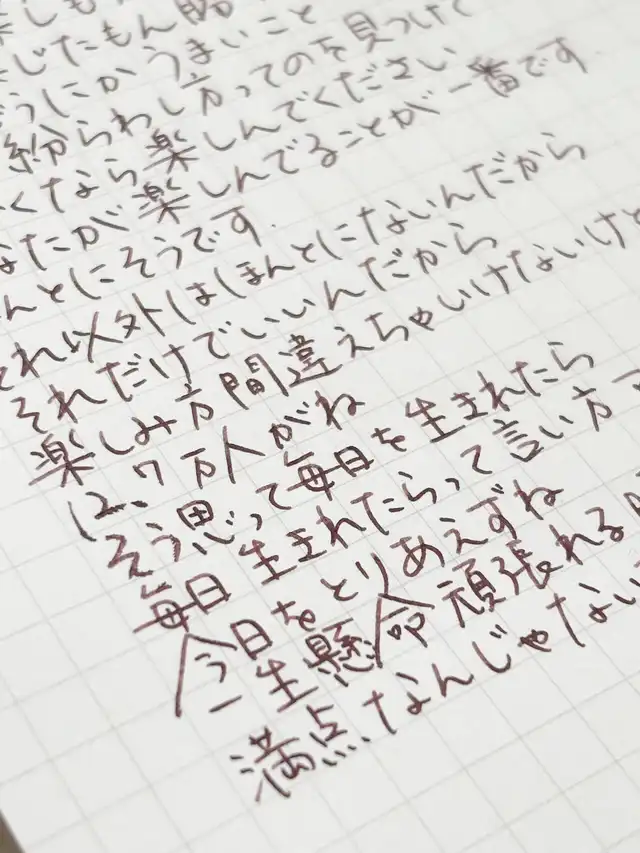 楽しもん
楽じたもん勝
どうにかうまいこと
紛らわし方ってのを見つけて
くなら楽しんでください
なたが楽しんでることが一番です.
んとにそうです.
それ以外はほんとにないんだから
それだけでいいんだから
楽しみ方間違えちゃいけないけど
に、7万人がね
そう思って毎日を生きれたら
毎日生きれたらって言い方
今日をとりあえずね
一生懸命頑張れる
満点なんじゃない